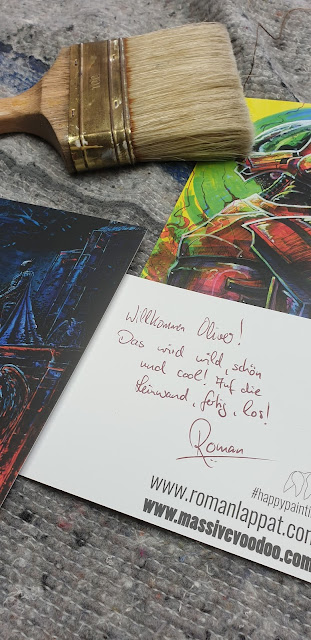 Willkommen Oliver!
Das wird wild, schön
und cool! Auf die
Leinwand, fertig, los!
Roman
#happypainti
www.romanlappat.com
www.massivevoodoo.com